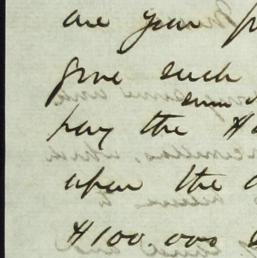 are your
give such
sum
pay the $
upon the
$100.000